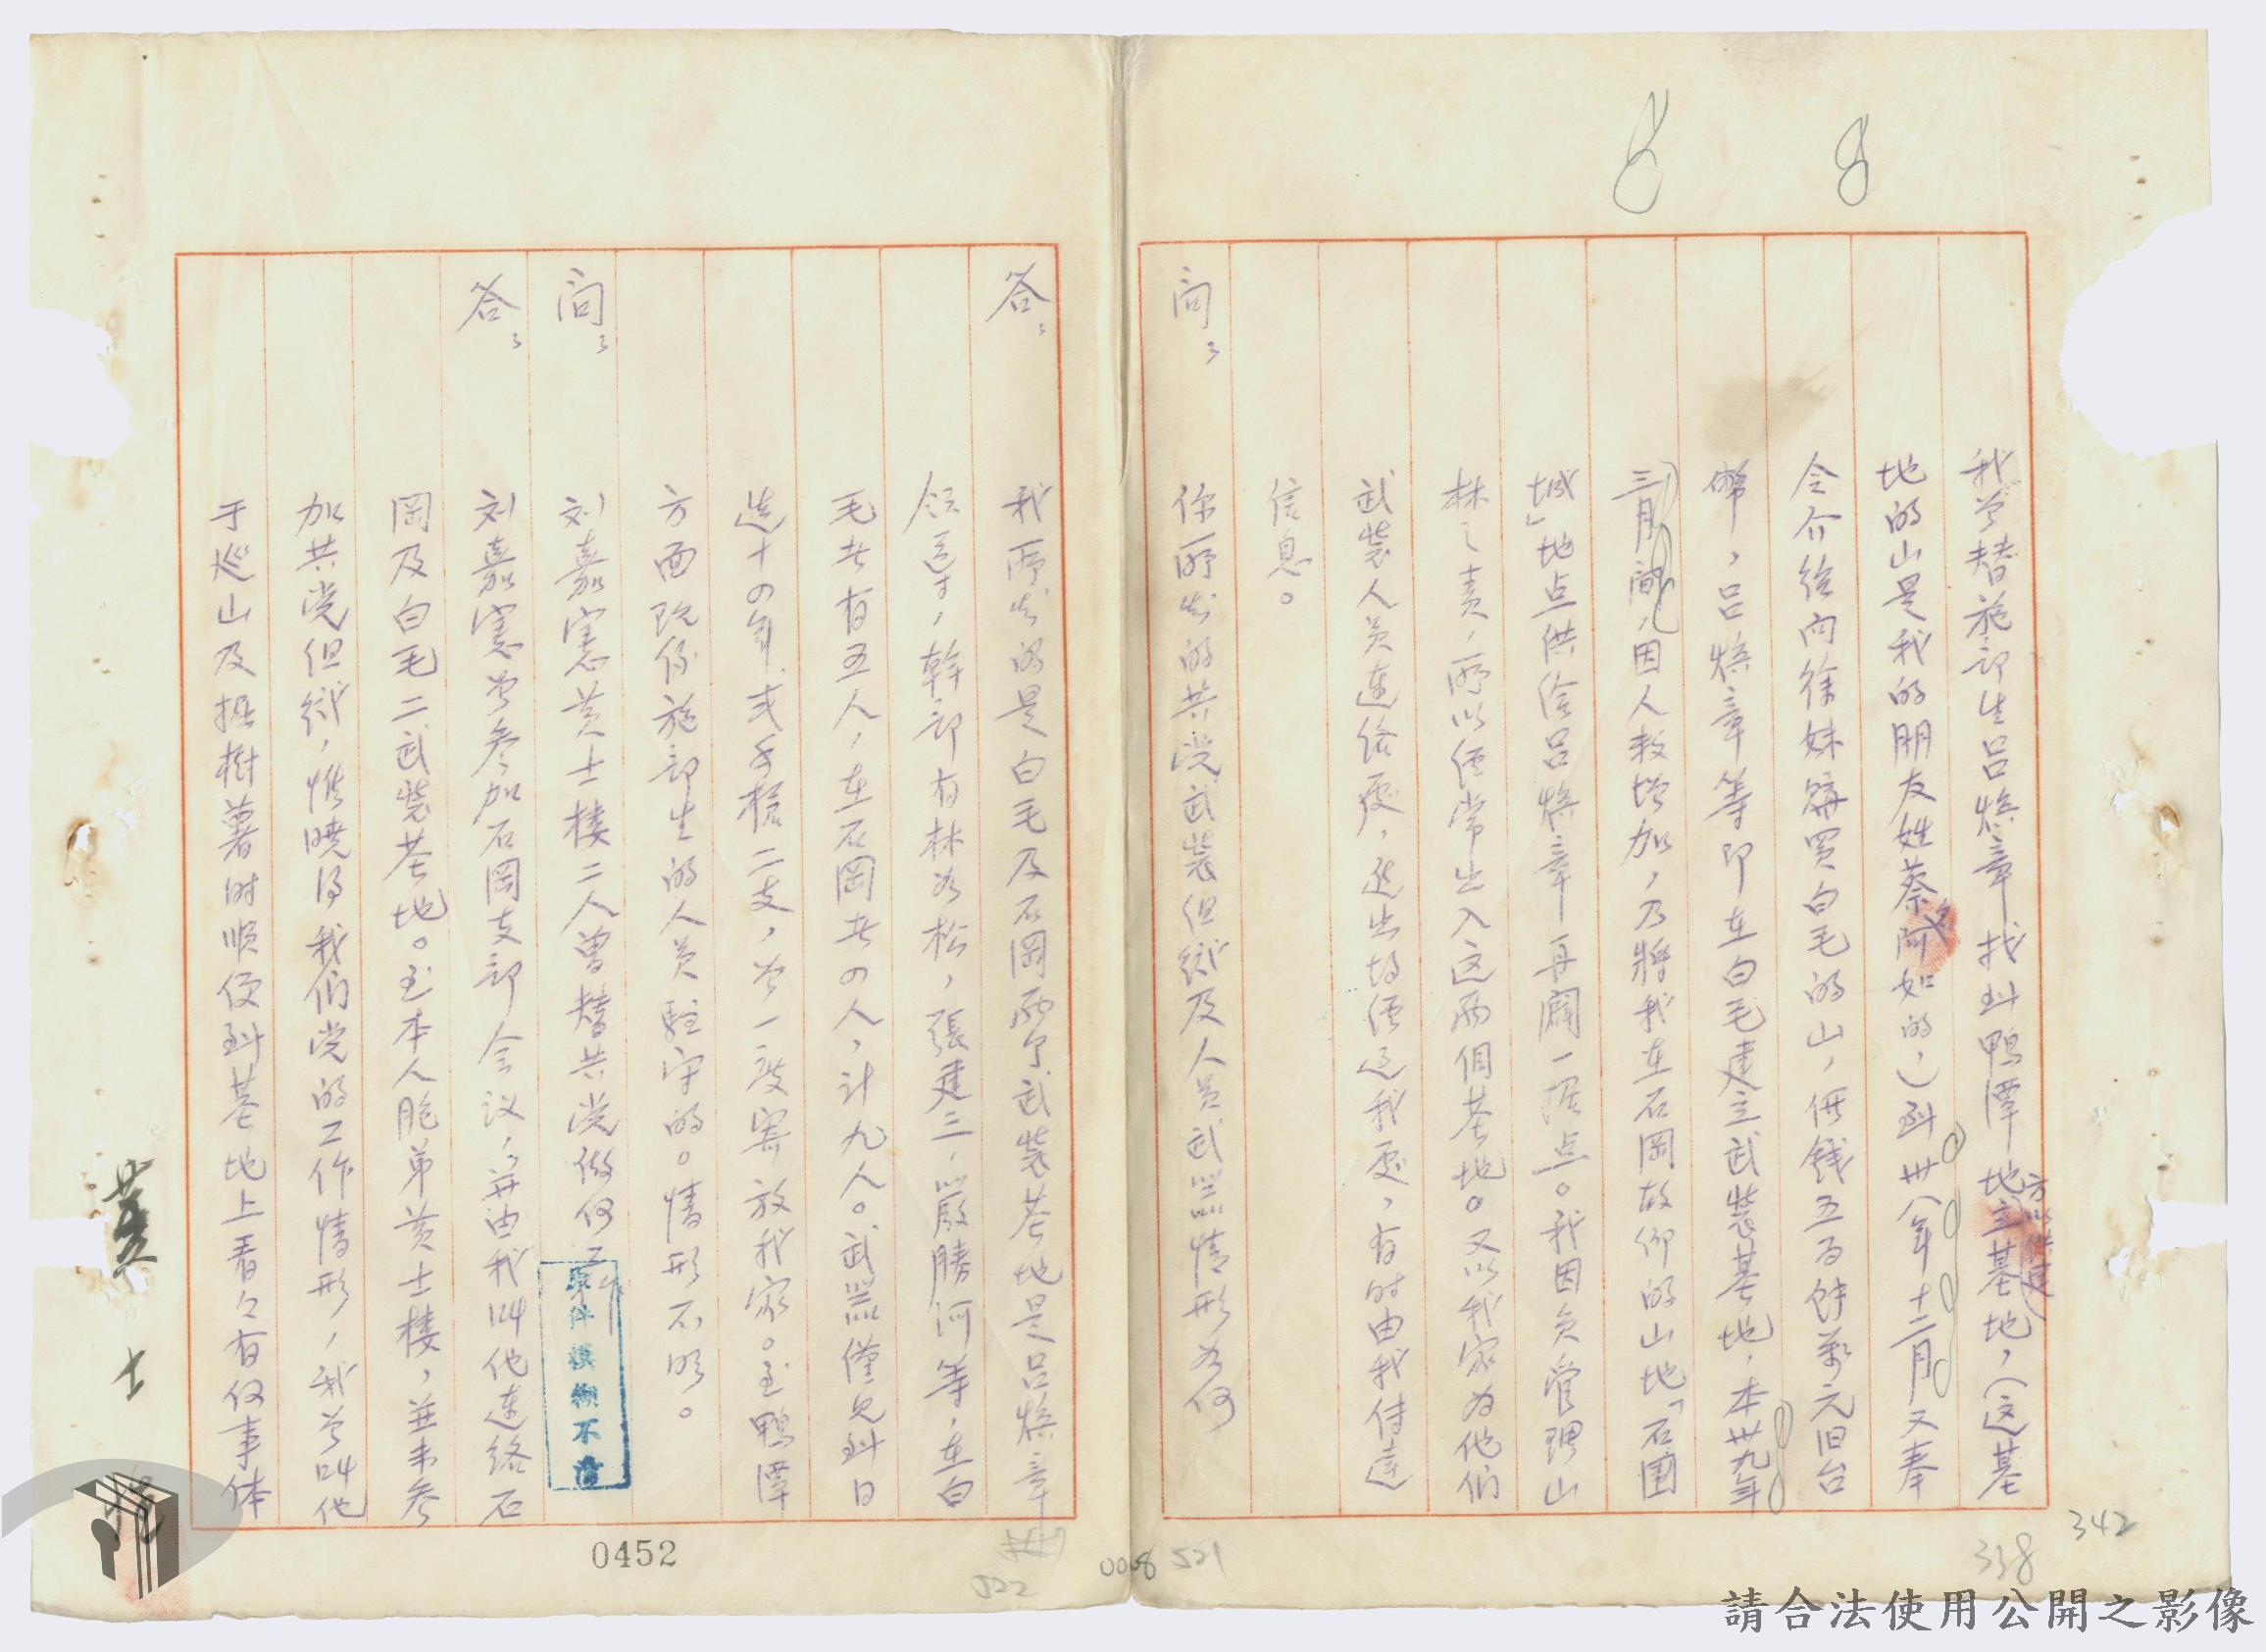 8
8
我曾替施部生呂煥章找到鴨潭地主基地，（這基
方以供建）
地的山是我的朋友姓蔡名阿如的，）到卅八年十二月又奉
令介绍向徐妹購買白毛的山，價錢五百餘萬元旧台
幣，呂煥章等即在白毛建立武裝基地，本卅九年
三月間，因人数增加，乃將我在石岡故鄉的山地「石圍
城」地点供给呂煥章再闢一据点。我因負管理山
林之責，所以經常出入这兩個基地。又以我家為他們
武裝人員連络處，進出均經过我處，有时由我传達
信息。
問： 你所知的共党武裝组織及人員武器情形為何
答： 我所知的是白毛及石岡兩个武裝基地是呂煥章
領导，幹部有林如松，張建三，嚴勝河等，在白
毛者有五人，在石岡者四人，计九人。武器僅見到日
造十四年式手槍二支，曾一度寄放我家。至鴨潭
方面既係施部生的人員駐守的。情形不明。
問： 刘嘉憲黄士樓二人曾替共党做何工作
答： 刘嘉憲曾参加石岡支部会议，并由我叫他連络石
岡及白毛二武裝基地。至本人胞弟黄士樓，並未参
加共党组织，惟曉得我们党的工作情形，我曾叫他
于巡山及掘樹薯时顺便到基地上看々有何事体
原件模糊不清
黃士
0452
522
0008
521
338
342
請合法使用公開之影像